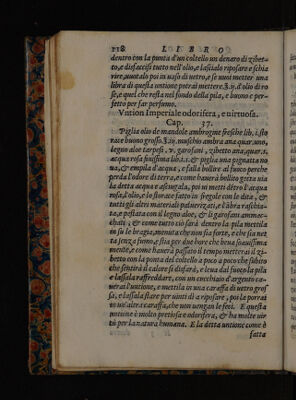 118 LIBRO
dentro con la punta d'un coltello un denaro di zibet-
to, e disfaccisi tutto nell'olio, e lascialo riposare e schia
rire, vuotalo poi in vaso di vetro, e se vuoi metter una
libra di questa untione potrai mettere.ʒ.iÿ.d'olio di ro
se, e quel che resta nel fondo della pila, e buono e per-
fetto per far perfumo.
Vntion Imperiale odorifera, e uirtuosa.
Cap. 37.
Piglia olio de mandole ambrogine fresche lib.i. sto
race buono grosso.ʒ.iÿ. muschio ambra ana quar.uno,
legno aloe tarpesi. garofani, zibetto ana.quar.
acqua rosa finissima lib.i. & piglia una pignatta no
ua, & empila d'acqua, e falla bollire al fuoco perche
perda l'odore di terra, e come hauerà bollito getta uia
la detta acqua e asciugala, poi ui metti dẽtro l'acqua
rosa, l'olio, e lo storace fatto in fregole con le dita, &
tutti gli altri materiali puluerizati, e l'ambra raschia-
ta, e pestata con il legno aloe, & li garofani ammac-
chati, & e come tutto ciò sarà dentro la pila mettila
in su le bragia, menuta che non sia forte, e che sia net
ta senza fumo, e stia per due hore che bena soauissima
mente, e come hauerà passato il tempo metterai il zi
betto con la ponta del coltello a poco a poco che subito
che sentirà il calore si disfarà, e leua dal fuoco la pila
e lassala raffreddare, con un cucchiaio d'argento ca-
uerai l'untione, e mettila in una caraffa di uetro gros
sa, e lassala stare per uinti dì a riposare, poi la porrai
in un'altra caraffa, che non uengan le feci. E questa
untione è molto pretiosa e odorifera, & ha molte uir
tù per la natura humana. E la detta untione come è
fatta